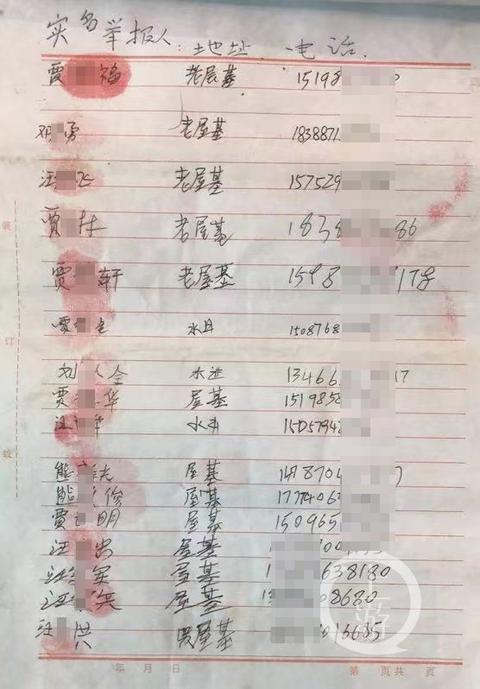 实名举报人: 地址 电话.
贾 福 老屋基 15198
邓 勇 老屋基 1838871
汪 飞 老屋基 157529
贾 林 老屋基 1838 86
贾 轩 老屋基 1598 178
贾 水井 1508768
刘 全 水井 13466 17
贾 华 屋基 1519858
汪 水井 15057948
熊 光 屋基 1478704
熊 俊 屋基 1774063
贾 明 屋基 150965
汪 忠 屋基
汪 实 屋基 1 638180
汪 兴 屋基 13 08680
汪 洪 老屋基 016635
装
订
线
年 月 日 第 页共 页